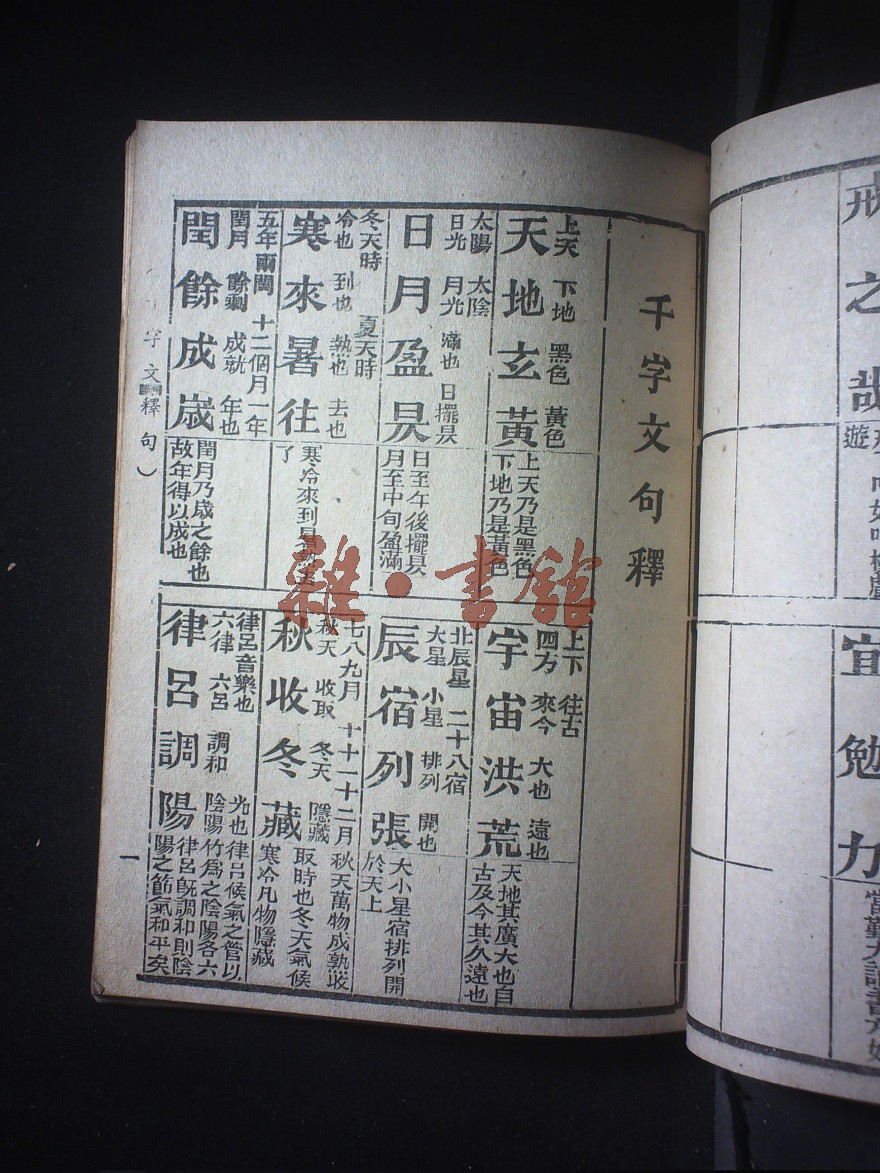 千字文句釋
上天 下地 黑色 黃色
天地玄黃
上天乃是黑色
下地乃是黃色
上下 往古
四方 來今 大也 遠也
宇宙洪荒
天地其廣大也自
古及今其久遠也
太陽 太陰
日光 月光 滿也 日擺昃
日月盈昃
日至午後擺昃
月至中旬盈滿
北辰星 二十八宿
大星 小星 排列 開也
辰宿列張
大小星宿排列開
於天上
冬天時 夏天時
冷也 到也 熱也 去也
寒來暑往
寒冷來到暑熱去
了
七八九月 十十一十二月
秋天 收取 冬天 隱藏
秋收冬藏
秋天萬物成熟收
取時也冬天氣候
寒冷凡物隱藏
五年兩閏 十二個月一年
閏月 餘剩 成就 年也
閏餘成歲
閏月乃歲之餘也
故年得以成也
律呂音樂也
六律 六呂 調和 陰陽
律呂調陽
光也律呂候氣之管以
竹爲之陰陽各六
律呂旣調和則陰
陽之節氣和平矣
字文 釋句）
一
戒之哉
遊
宜勉力
當勤大讀書方好
雜·書館